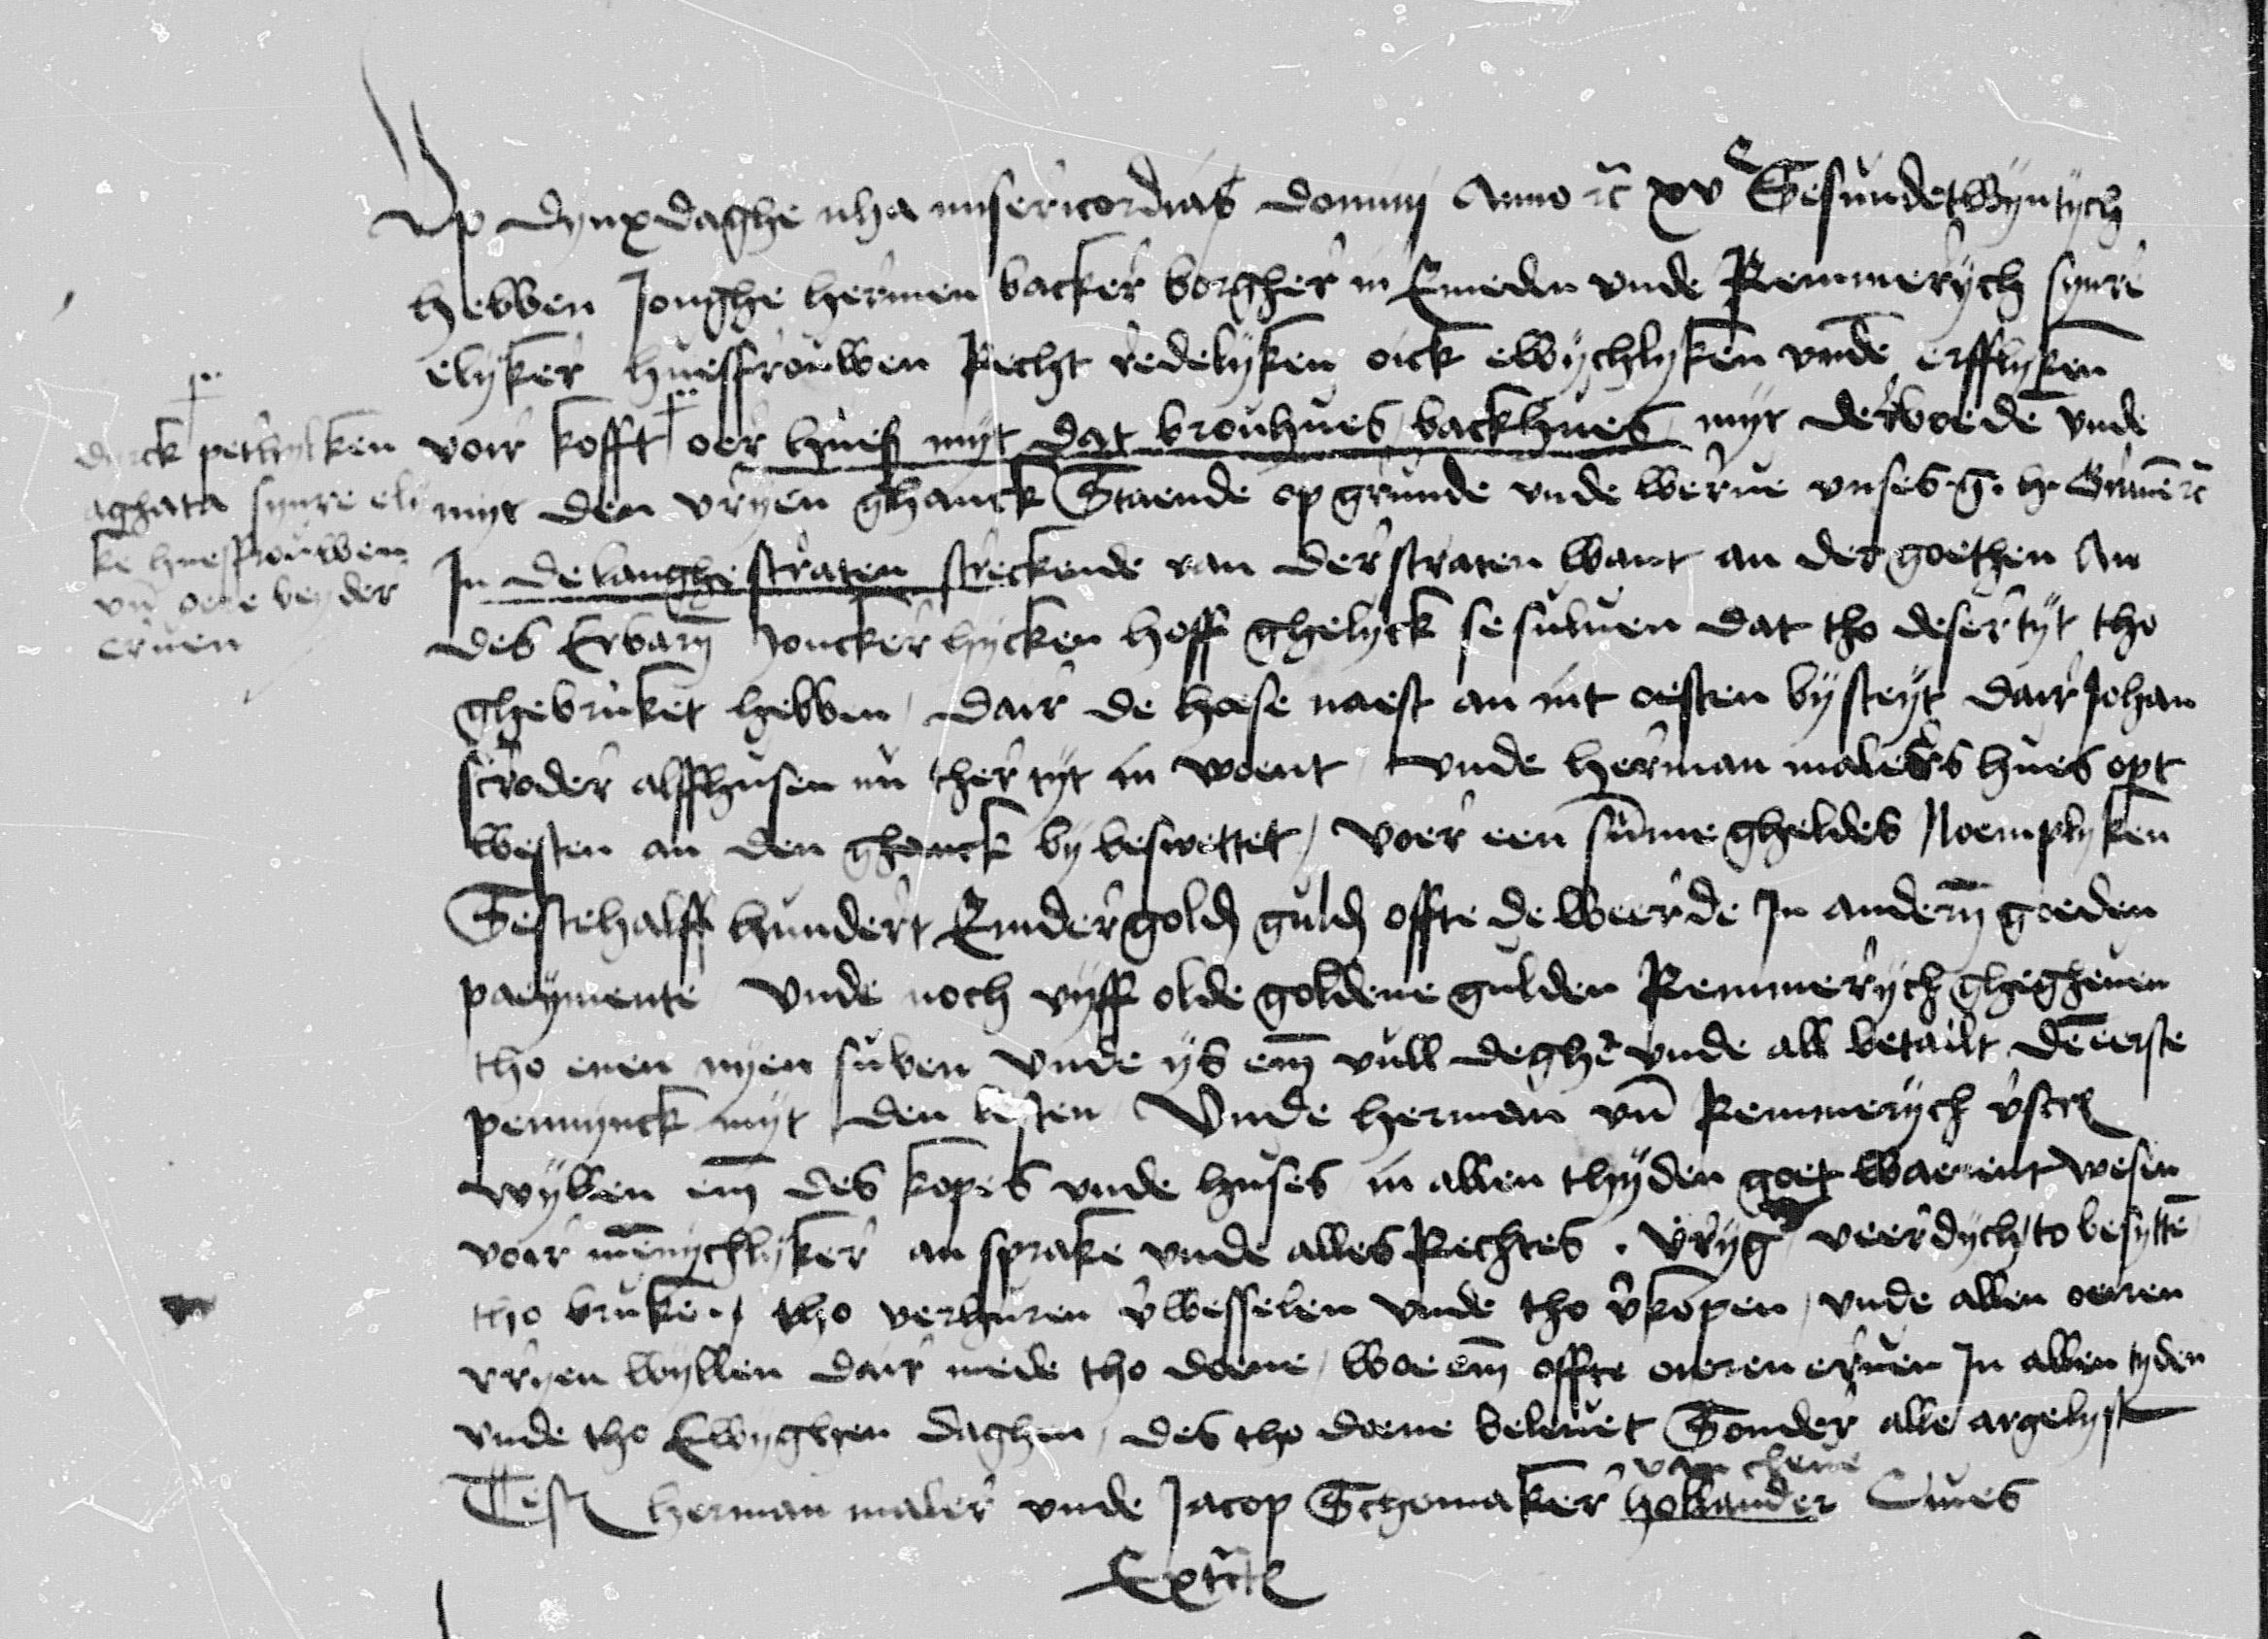 Up dynxdaghe nha misericordias domini Anno rc xvc Sesundetwyntych
hebben Jonghe hermen backer borgher in Emeden vnde Remmerych synre
elyker huesfrouwen Recht redelyken oick ewychlyken vnde erfflyken
voir kofft oer hues myt dat brouhues backhues myt der boede vnde
myt den vryen ghanck Staende op grunde vnde werue vnses g. h. Grauen rc
In de langhe straten streckende van der straten want an der goethen An
des Erbarn Joncker hycken hoff ghelyck se suluen dat tho deser tyt tho
ghebruket hebben / dair de hoese naest an int oesten by steyt dair Johan
scroder alffhusen nu ther tyt in woent / vnde herman malers hues opt
westen an den ghanck by beswettet / voer een summe gheldes Noemplyken
Sestehalff hundert Emder gold guld offte de weerde In andern goeden
paeymente / vnde noch vyff olde goldene gulden Remmerych ghegheuen
tho enen nyen suben vnde ys em vull deghe vnde all betailt den eerste
pennynck myt den lesten / Vnde herman vn Remmerych vscr
wyllen em des kopes vnde huses in allen thyden goet waerent wesen
voir mennychlyker an sprake vnde alles Rechtes . vryg veerdych / to besytten
tho bruken / tho verhuren vwesselen vnde tho vkopen / vnde allen oeren
vryen wyllen dair mede tho doene / woe em offte oeren eruen In allen tyden
vnde tho Ewyghen daghen / des tho doene beleuet Sonder alle argelyst
van cleue
Test herman maler vnde Jacop Schomaker hollander Ciues
Extr
dirck petersen
aghata synre ely
ke huesfrouwen
vn oere beyder
eruen